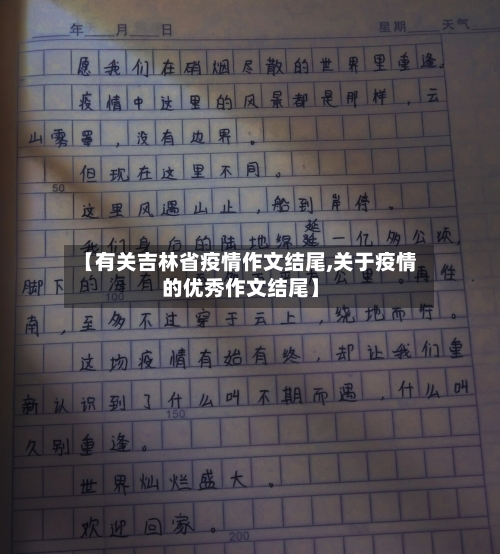 年 月 日 星期 天气
愿我们在硝烟尽散的世界里重逢。
疫情中这里的风景都是那样，云
山雾罩，没有边界。
但现在这里不同。
50
这里风遇山止，船到岸停。
我们身后的陆地绵延一亿多公顷，
【有关吉林省疫情作文结尾,关于疫情
脚下的海有
公里。再往
的优秀作文结尾】
南，至多不过穿于云上，绕地而行。
这场疫情有始有终，却让我们重
新认识到了什么叫不期而遇，什么叫
150
久别重逢。
世界灿烂盛大。
欢迎回家。
200